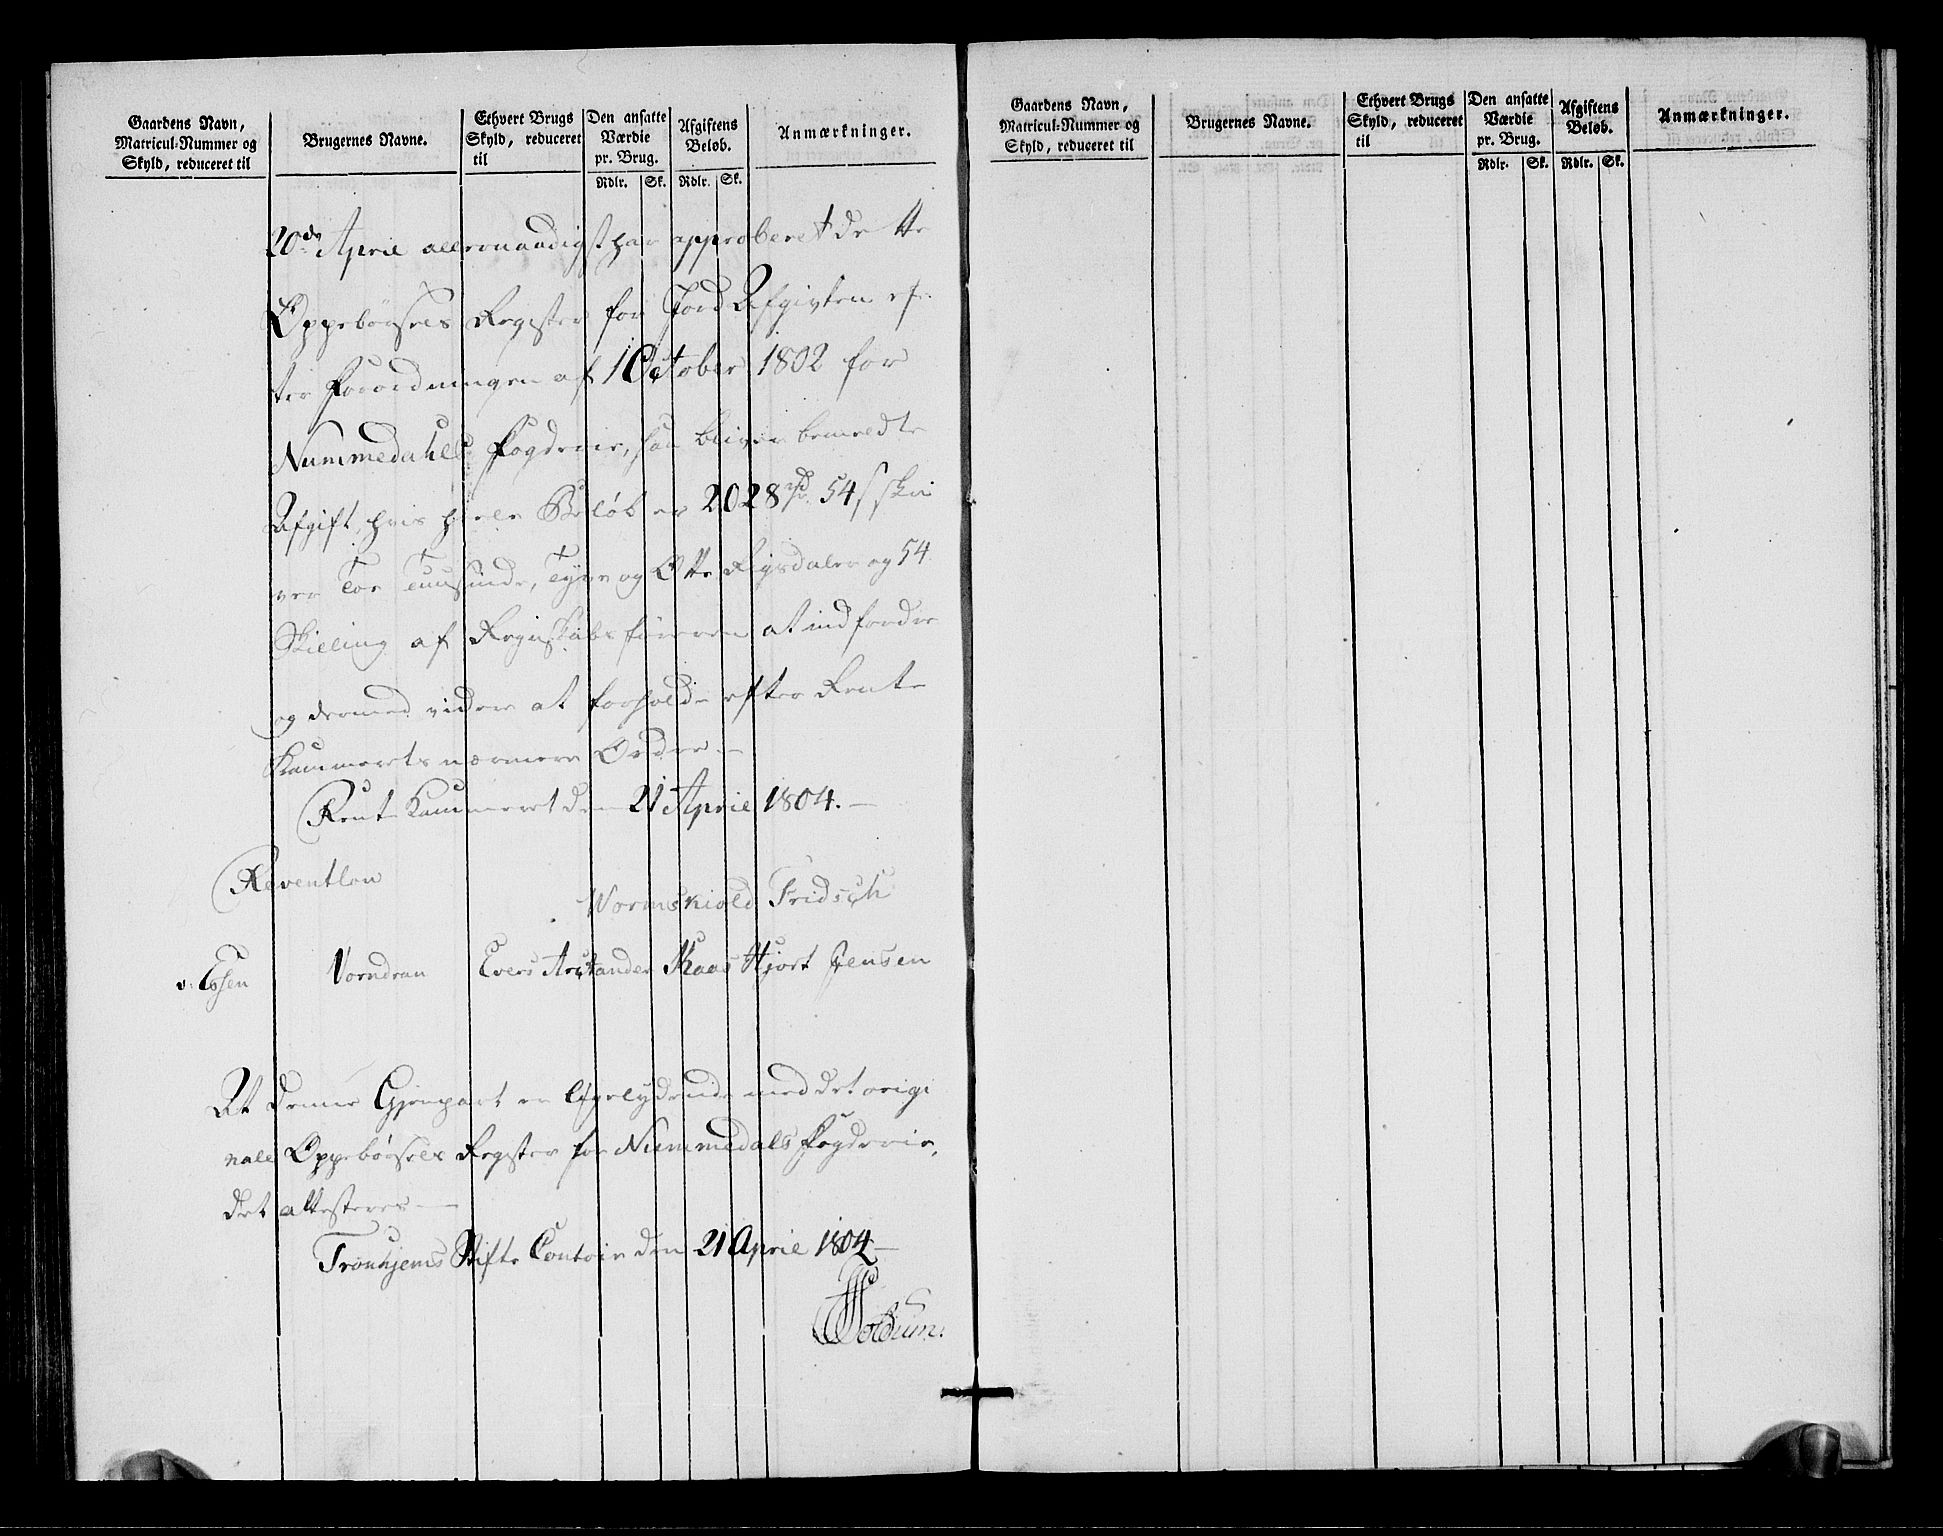 Gaardens Navn,
Matricul-Nummer og
Skyld, reduceret til
Brugernes Navne.
Ethvert Brugs
Skyld, reduceret
til
Den ansatte
Værdie
pr. Brug.
Rdlr. Sk.
Afgiftens
Beløb.
Rdlr. Sk.
Anmærkninger.
20de April allernaadigst har approberet dette
Oppebørsels Register for Jord Afgivten ef-
ter Forordningen af 1 October 1802 for
Nummedahls Fogderie, saa bliver bemeldte
Afgift, hvis heele Beløb er 2028 rd 54 s skri
ver Toe Tuusinde, Tyve og Otte Rigsdaler og 54
Skilling af Regnskabsføreren at indfordre
og dermed videre at forholde efter Rente
Kammerets nærmere Ordre —
Rente Kammeret den 21 April 1804. —
Reventlou
Wormskiold Fridsch
v. Essen Vorndran Evers Arctander Kaas Hjort Jensen
At denne Gjenpart er ligelydende med det origi
nale Oppebørsels Register for Nummedals Fogderie,
det attesteres —
Tronhjems Stifts Contoir den 21 April 1804 —
Gaardens Navn,
Matricul-Nummer og
Skyld, reduceret til
Brugernes Navne.
Ethvert Brugs
Skyld, reduceret
til
Den ansatte
Værdie
pr. Brug.
Rdlr. Sk.
Afgiftens
Beløb.
Rdlr. Sk.
Anmærkninger.